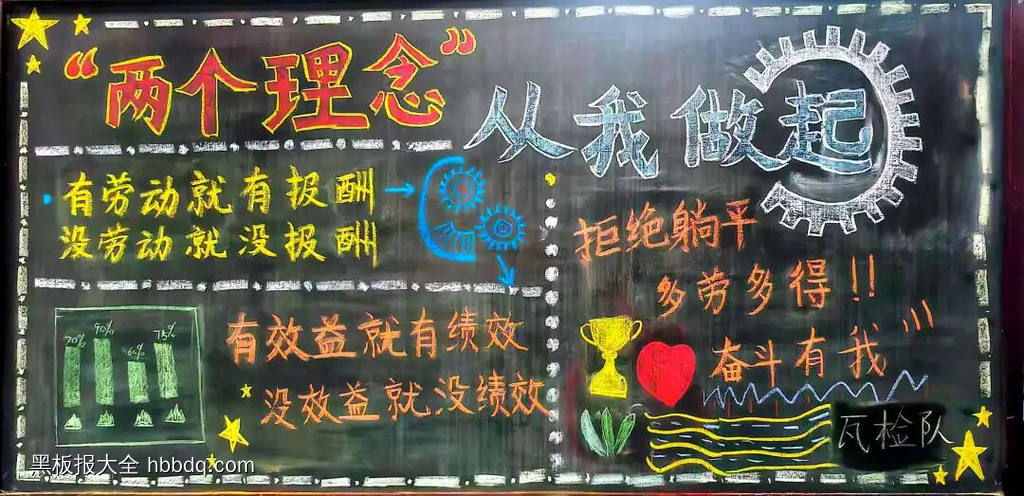 “两个理念”
从我做起
有劳动就有报酬
没劳动就没报酬
有效益就有绩效
没效益就没绩效
70% 90% 60% 75%
拒绝躺平
多劳多得!!
奋斗有我
瓦检队
黑板报大全 hbbdq.com